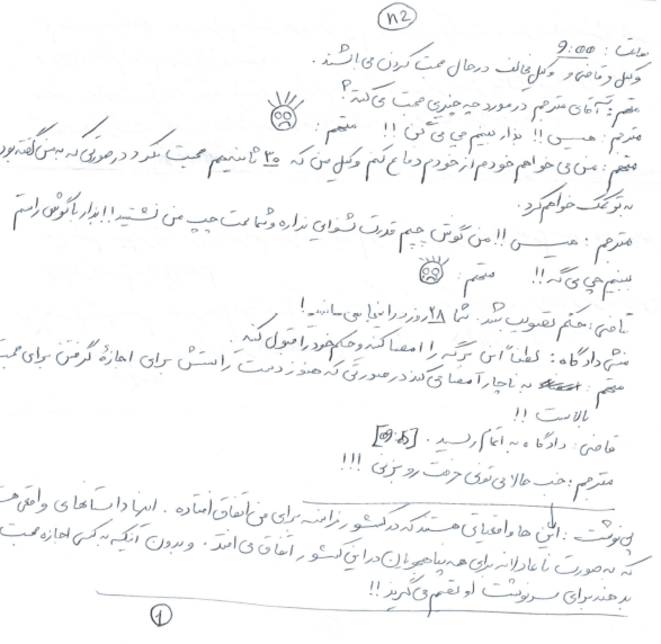 n2
ساعت : 9:00
وکیل و قاضی و وکیل مخالف در حال صحبت کردن می باشند .
متهم : آقای مترجم در مورد چه چیزی صحبت می کنند ؟
مترجم : هیسس !! بذار ببینم چی می گن !! متهم :
متهم : من می خواهم خودم از خودم دفاع کنم وکیل من که ۳۰ ثانیه هم صحبت نکرد در صورتی که به من گفته بود
به تو کمک خواهم کرد .
مترجم : هیسس !! من گوش چپم قدرت شنوایی نداره و شما سمت چپ من نشستید !! بذار با گوش راستم
ببینم چی می گه !! متهم :
قاضی : حکم تصویب شد . شما ۲۸ روز در اینجا می مانید !
منشی دادگاه : لطفاً این برگه را امضا کند و حکم خود را قبول کند .
متهم : به ناچار امضا می کند در صورتی که هنوز دست راستش برای اجازه گرفتن برای صحبت
بالاست !!
قاضی : دادگاه به اتمام رسید . [09:05]
مترجم : خب حالا می تونی حرفت رو بزنی !!!
پی نوشت : این ها واقعیاتی هستند که در کشور فرانسه برای من اتفاق افتاده . اینها داستانهای واقعی هست
که به صورت ناعادلانه برای همه پناهجویان در این کشور اتفاق می افتد . و بدون آنکه به کسی اجازه صحبت
بدهند برای سرنوشت او تصمیم می گیرند !!
1